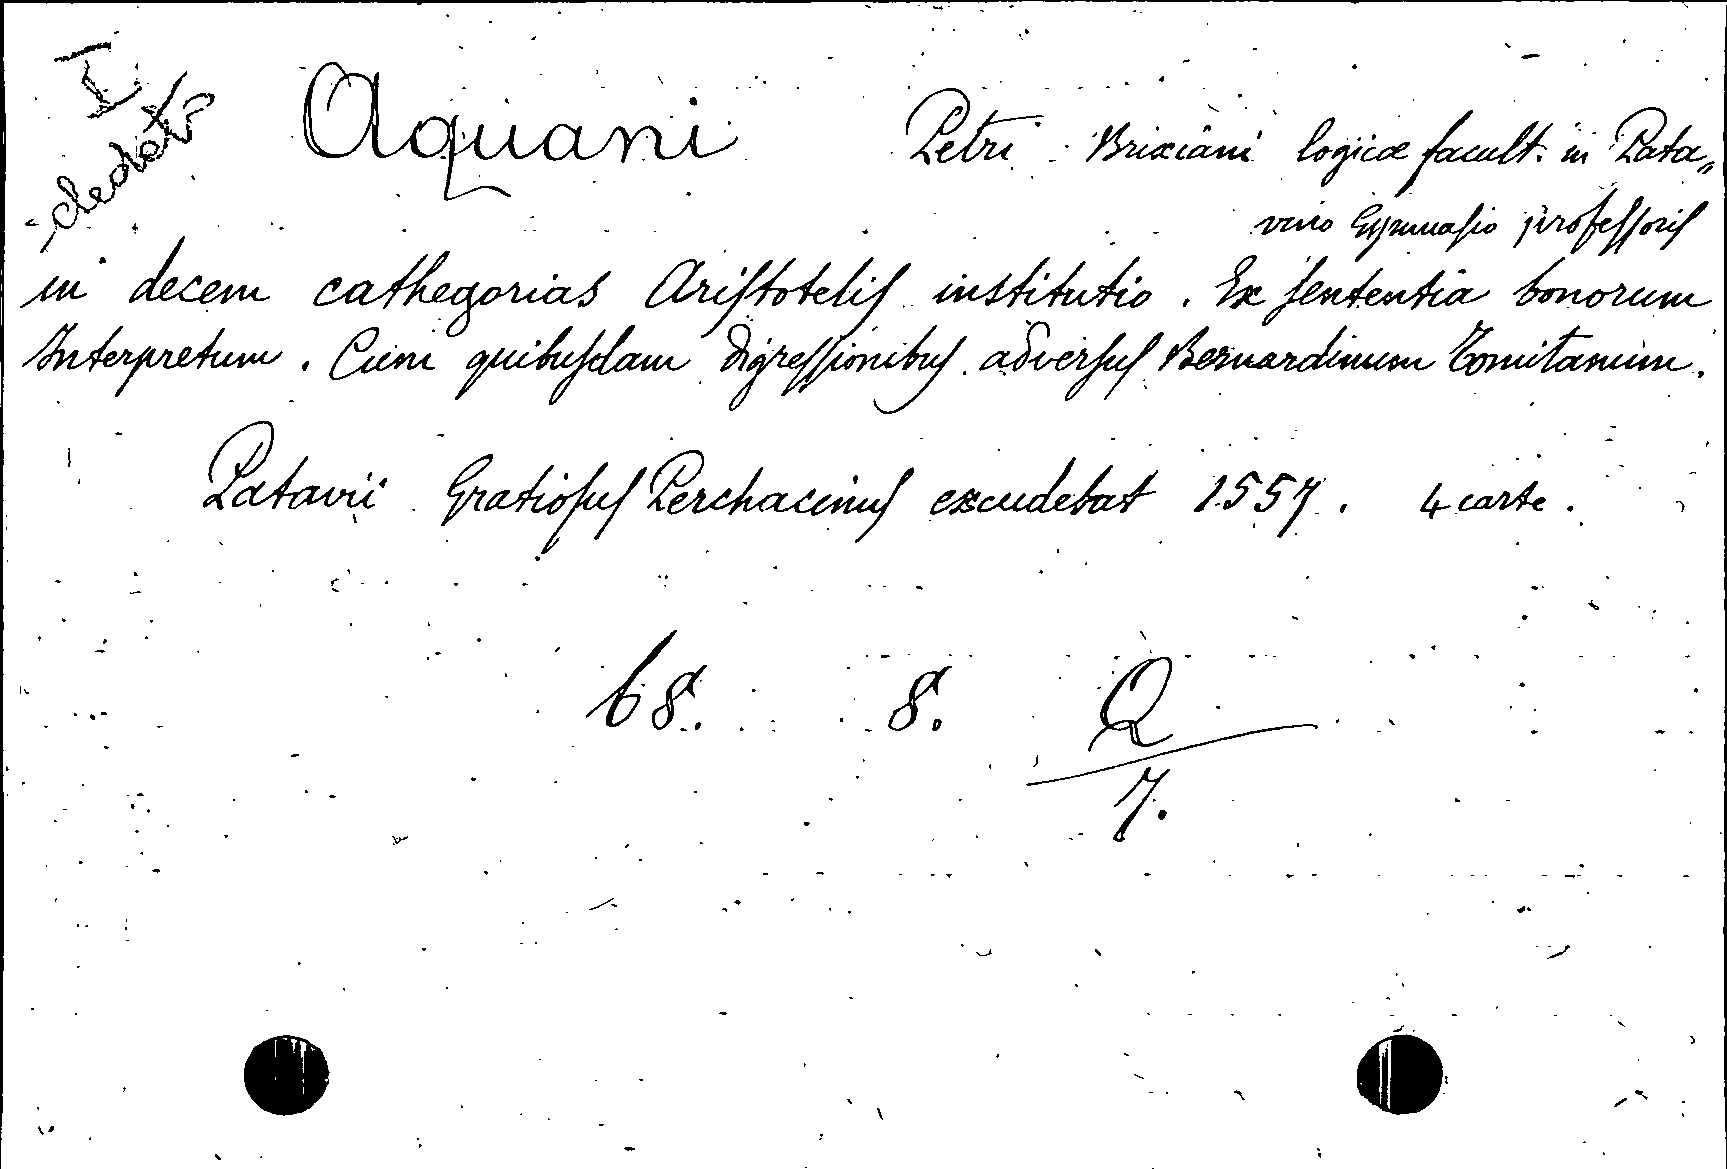 I
Aquani Petri Brixiani logicæ facult. in Pata„
vino Gymnaſio profeſſoriſ
in decem cathegorias Ariſtoteliſ institutio. Ex ſententia bonorum
Interpretum. Cum quibuſdam digreſſionibuſ adverſuſ Bernardinum Tomitanum.
Patavii Gratioſuſ Perchacinuſ excudebat 1557. 4 carte.
68. 8. Q
7.